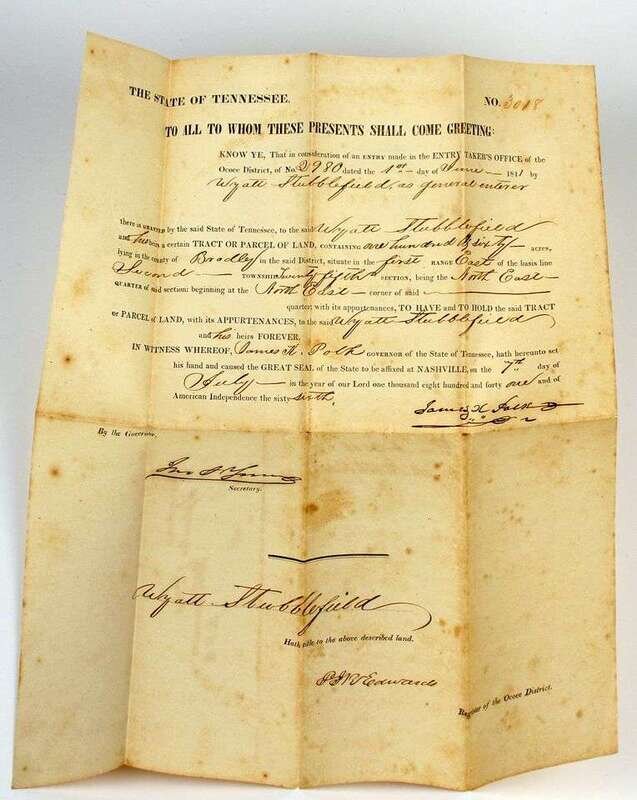 THE STATE OF TENNESSEE. NO. 3018
TO ALL TO WHOM THESE PRESENTS SHALL COME GREETING:
KNOW YE, That in consideration of an ENTRY made in the ENTRY TAKER'S OFFICE of the
Ocoee District, of No. 2980 dated the 1st day of June 1841 by
Wyatt Stubblefield, as general enterer
there is GRANTED by the said State of Tennessee, to the said Wyatt Stubblefield
and his heirs a certain TRACT OR PARCEL OF LAND, CONTAINING one hundred & sixty acres,
lying in the county of Bradley in the said District, situate in the first RANGE East of the basis line
Second TOWNSHIP Twenty fifth SECTION, being the North East
QUARTER of said section: beginning at the North East corner of said
quarter; with its appurtenances, TO HAVE and TO HOLD the said TRACT
or PARCEL OF LAND, with its APPURTENANCES, to the said Wyatt Stubblefield
and his heirs FOREVER.
IN WITNESS WHEREOF, James K. Polk GOVERNOR of the State of Tennessee, hath hereunto set
his hand and caused the GREAT SEAL of the State to be affixed at NASHVILLE, on the 7th day of
July in the year of our Lord one thousand eight hundred and forty one and of
American Independence the sixty sixth.
James K Polk
By the Governor,
Jno S Young
Secretary.
Wyatt Stubblefield
Hath title to the above described land.
Edwards
Register of the Ocoee District.